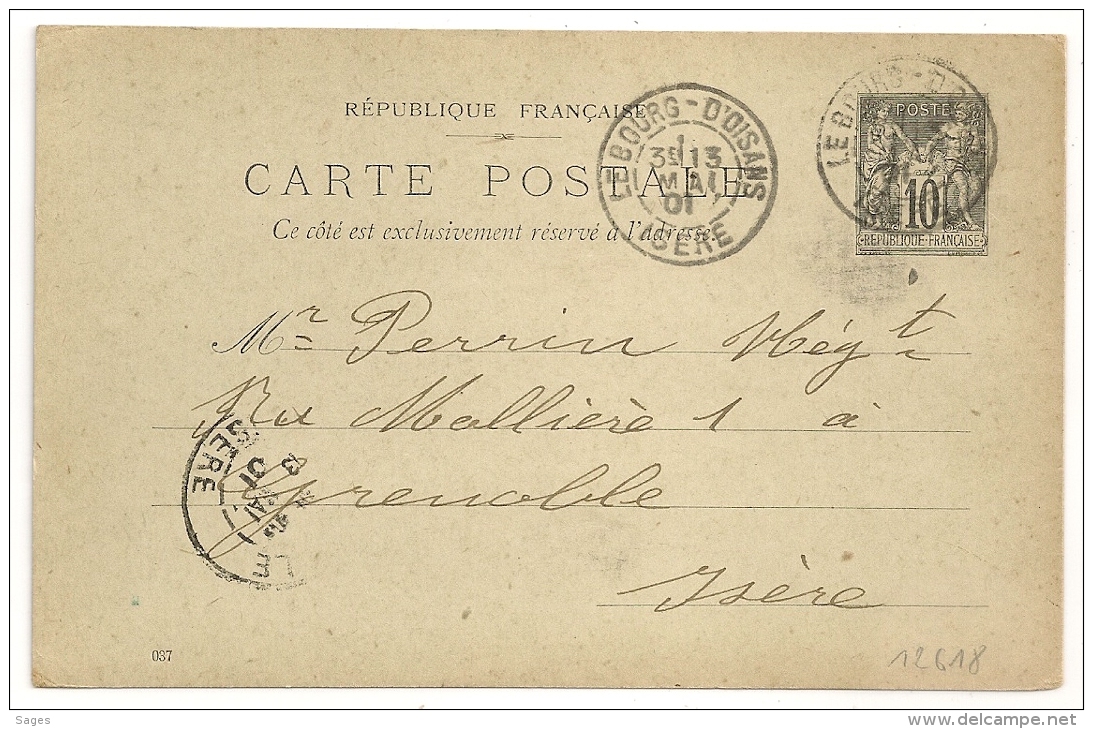 RÉPUBLIQUE FRANÇAISE
CARTE POSTALE
Ce côté est exclusivement réservé à l'adresse.
LE BOURG-D'OISANS
3E 13
MAI
01
ISÈRE
LE BOURG-D'
POSTE
10
RÉPUBLIQUE·FRANÇAISE
Mr Perrin Négt
Rue Mallière 1 à
Grenoble
Isère
ISÈRE
01
LE
037
12618
Sages
www.delcampe.net